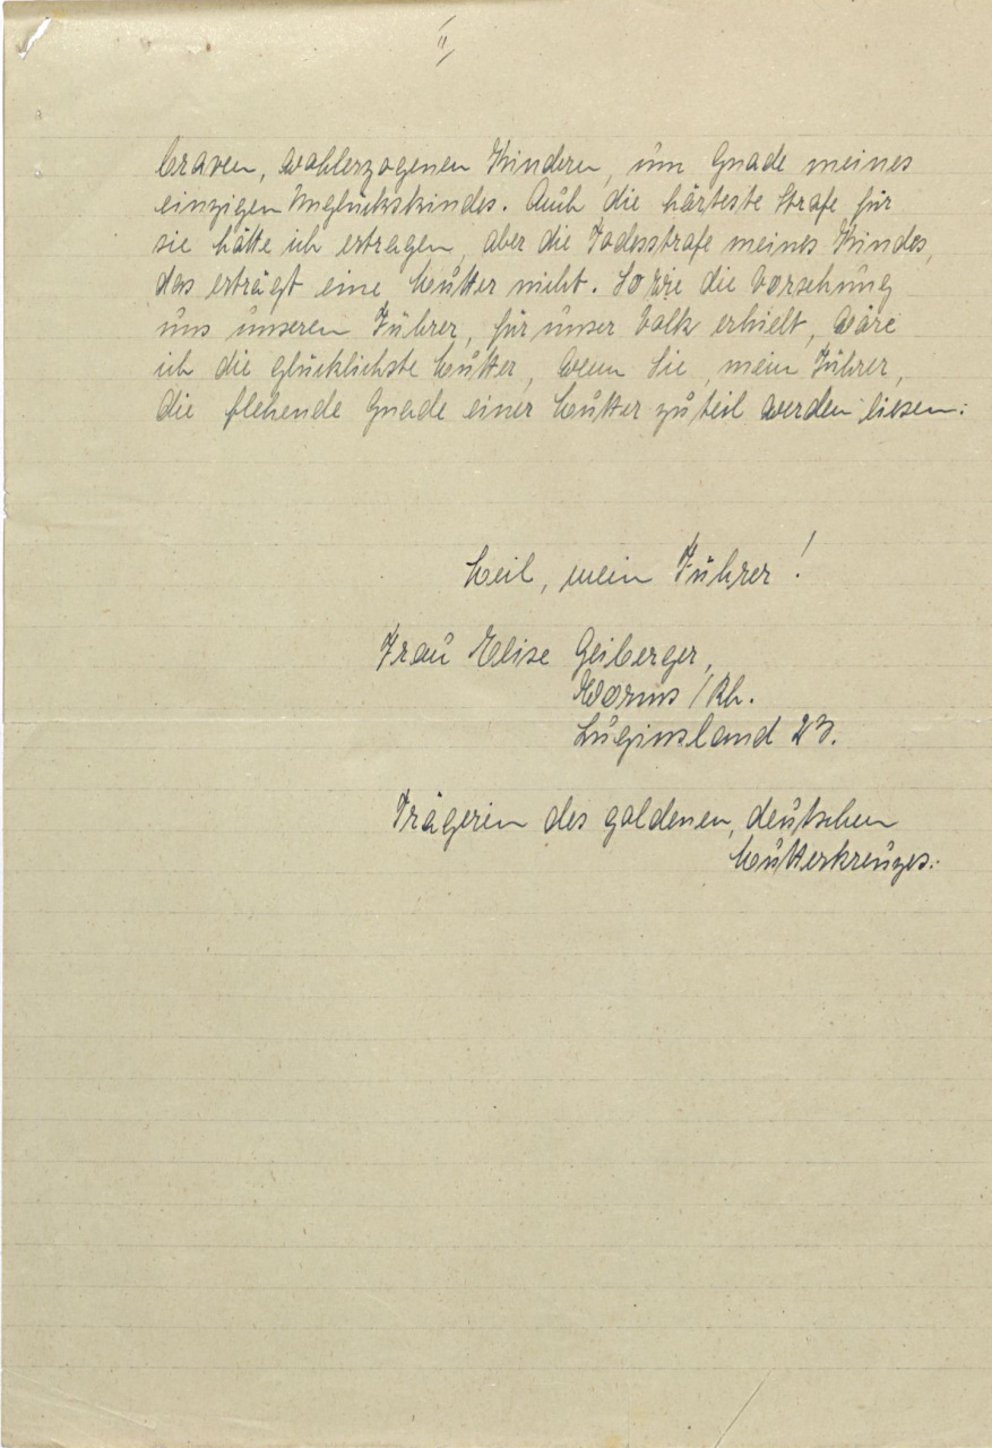 II
braven, wohlerzogenen Kindern, um Gnade meines
einzigen Unglückskindes. Auch die härteste Strafe für
sie hätte ich ertragen, aber die Todesstrafe meines Kindes,
das erträgt eine Mutter nicht. So wie die Vorsehung
uns unseren Führer, für unser Volk erhielt, wäre
ich die glücklichste Mutter, wenn Sie, mein Führer,
die flehende Gnade einer Mutter zuteil werden liesen.
Heil, mein Führer!
Frau Elise Geiberger,
Worms / Rh.
Luginsland 23.
Trägerin des goldenen, deutschen
Mutterkreuzes.